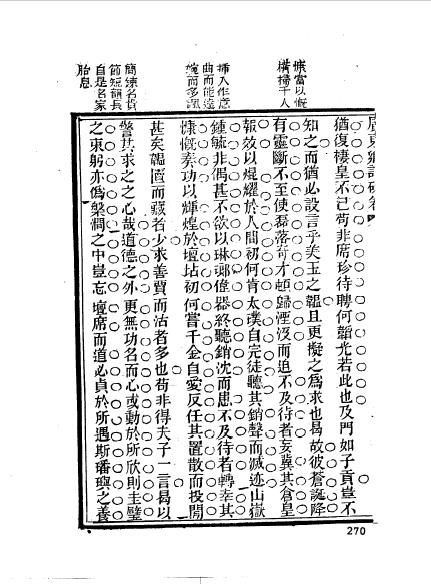 當以慨
橫掃千人
插入作意
曲而能達
婉而多諷
簡練名貴
節短韻長
自是名家
胎息
廣東鄉試硃卷
猶復棲皇不已苟非席珍待聘何韜光若此也及門如子貢豈不
知之而猶必設言乎美玉之韞且更擬之為求也易故彼蒼誕降
有靈斷不至使磊落奇才頓歸湮沒而迫不及待者妄冀其倉皇
報效以焜耀於人間初何肯太璞自完徒聽其銷聲而滅迹山嶽
鍾毓非偶甚不欲以琳瑯偉器終聽銷沈而迫不及待者轉幸其
慷慨奏功以輝煌於壇坫初何嘗千金自愛反任其置散而投閒
甚矣韞匵而藏者少求善賈而沽者多也苟非得夫子一言曷以
警其求之之心哉道德之外更無功名而心或動於所欣則圭璧
之束躬亦僞槃澗之中豈忘壇席而道必貞於所遇斯璠璵之養
270